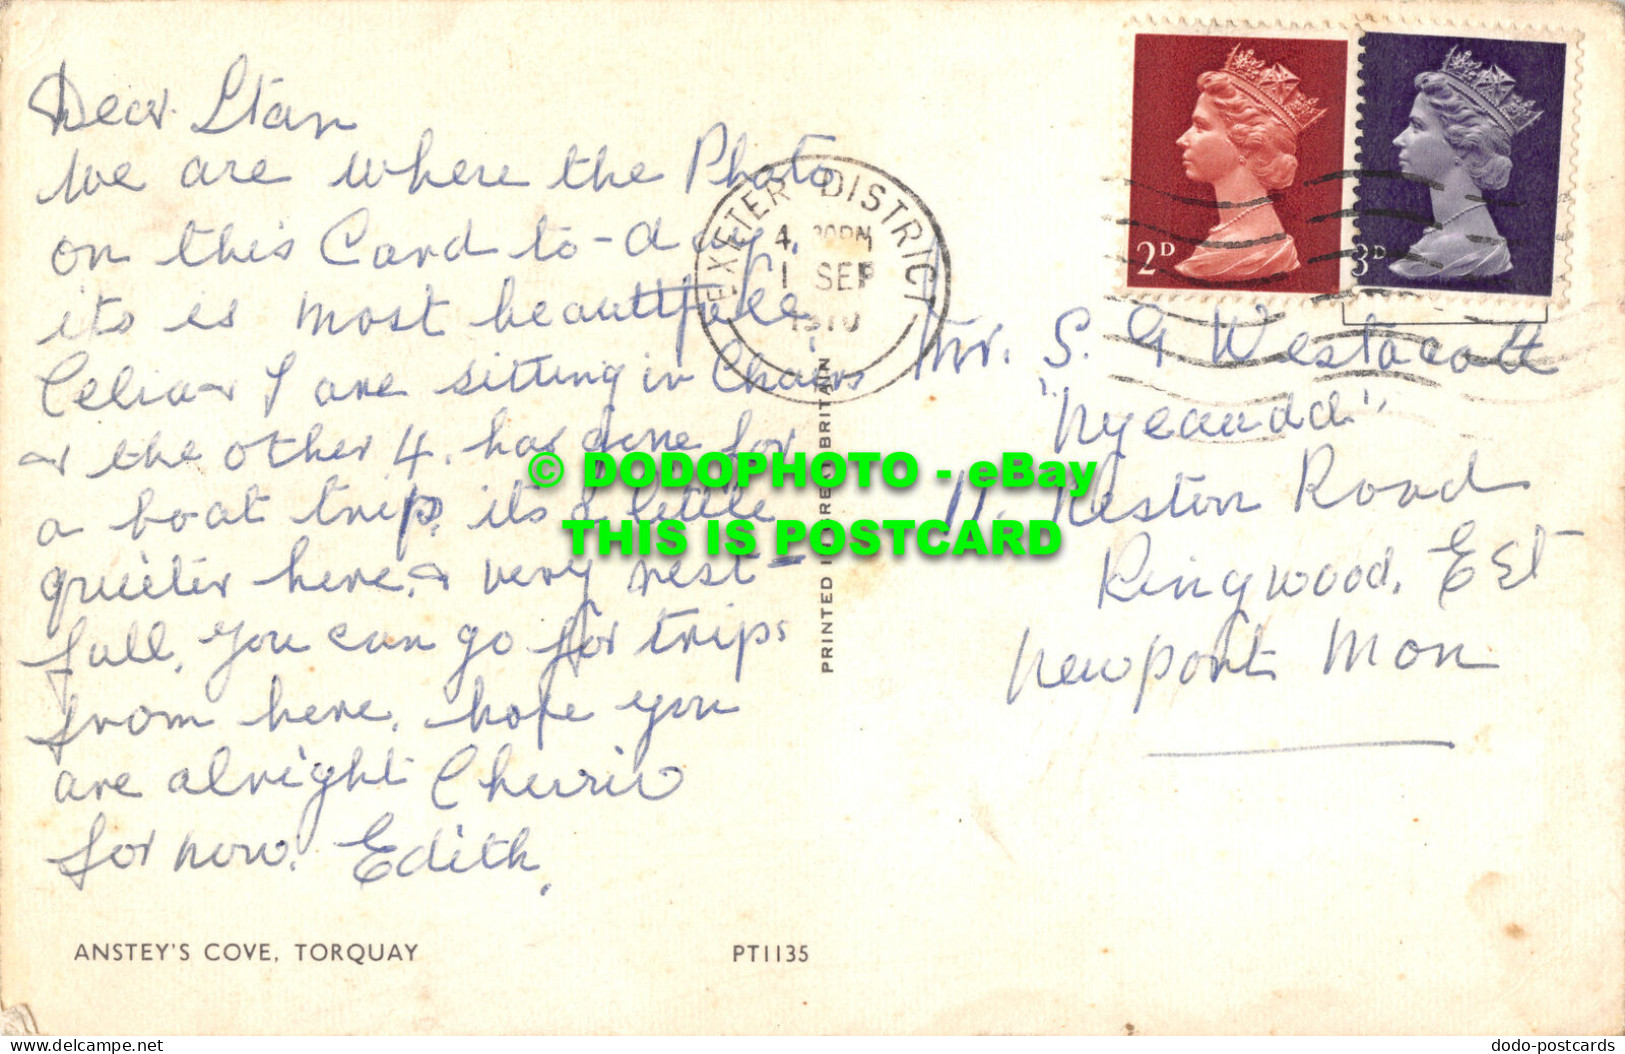 Dear Stan
We are where the Photo
on this Card to-day,
its is most beautifull
Celia & I are sitting in Chairs
& the other 4. has gone for
a boat trip, its a little
quieter here, & very rest-
full, you can go for trips
from here, hope you
are alright Cherrio
for now. Edith,
ANSTEY'S COVE, TORQUAY
PT1135
EXETER DISTRICT
4. 30PM
1 SEP
1970
PRINTED IN GREAT BRITAIN
2D
3D
Mr. S. G Westacott
11. Keston Road
Ringwood, Est
Newport Mon
© DODOPHOTO - eBay
THIS IS POSTCARD
delcampe.net
dodo-postcards